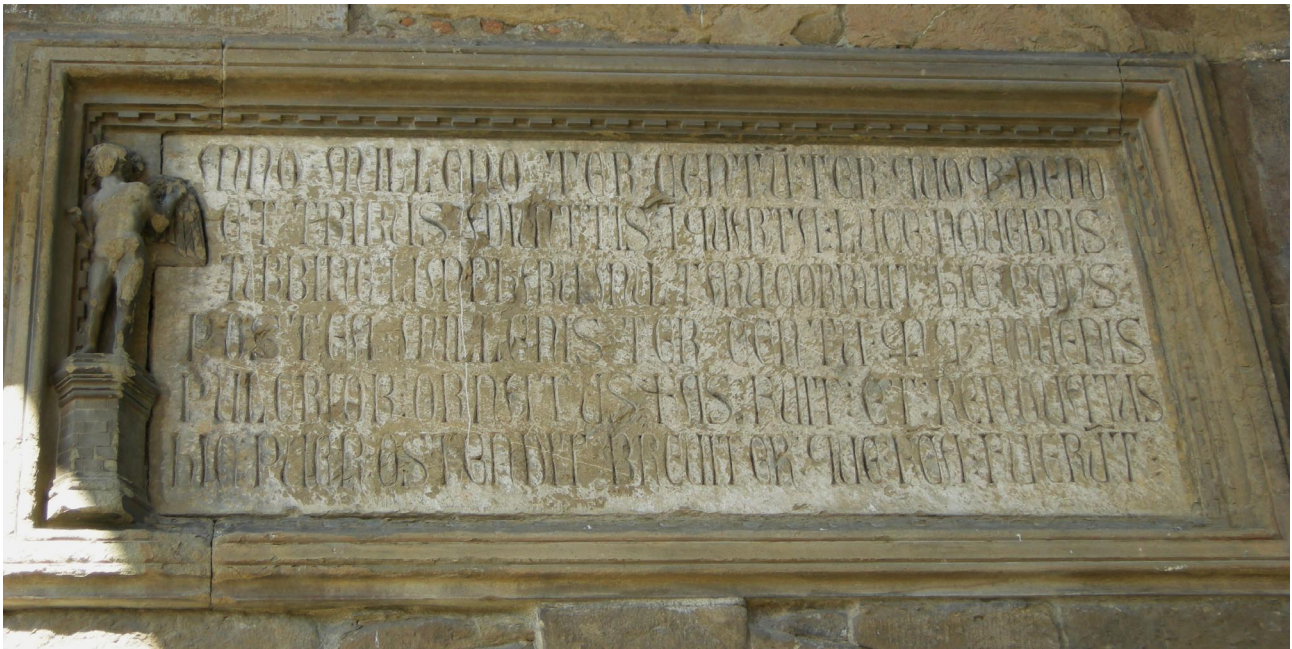 ANNO MILLENO TER CENTŪ TER QUOQ DENO
ET TRIBUS ADIUNTIS I QUARTA LUCE NOVEBRIS
TURBINE LIMPHARU MULTARU CORRUIT HIC PONS
POSTEA MILLENIS TER CENTU NOVENIS
PULCRIOR ORNATUS FUIT ET RENOVATUS
HIC PUER OSTENDIT BREVITER QUE FUERŪT